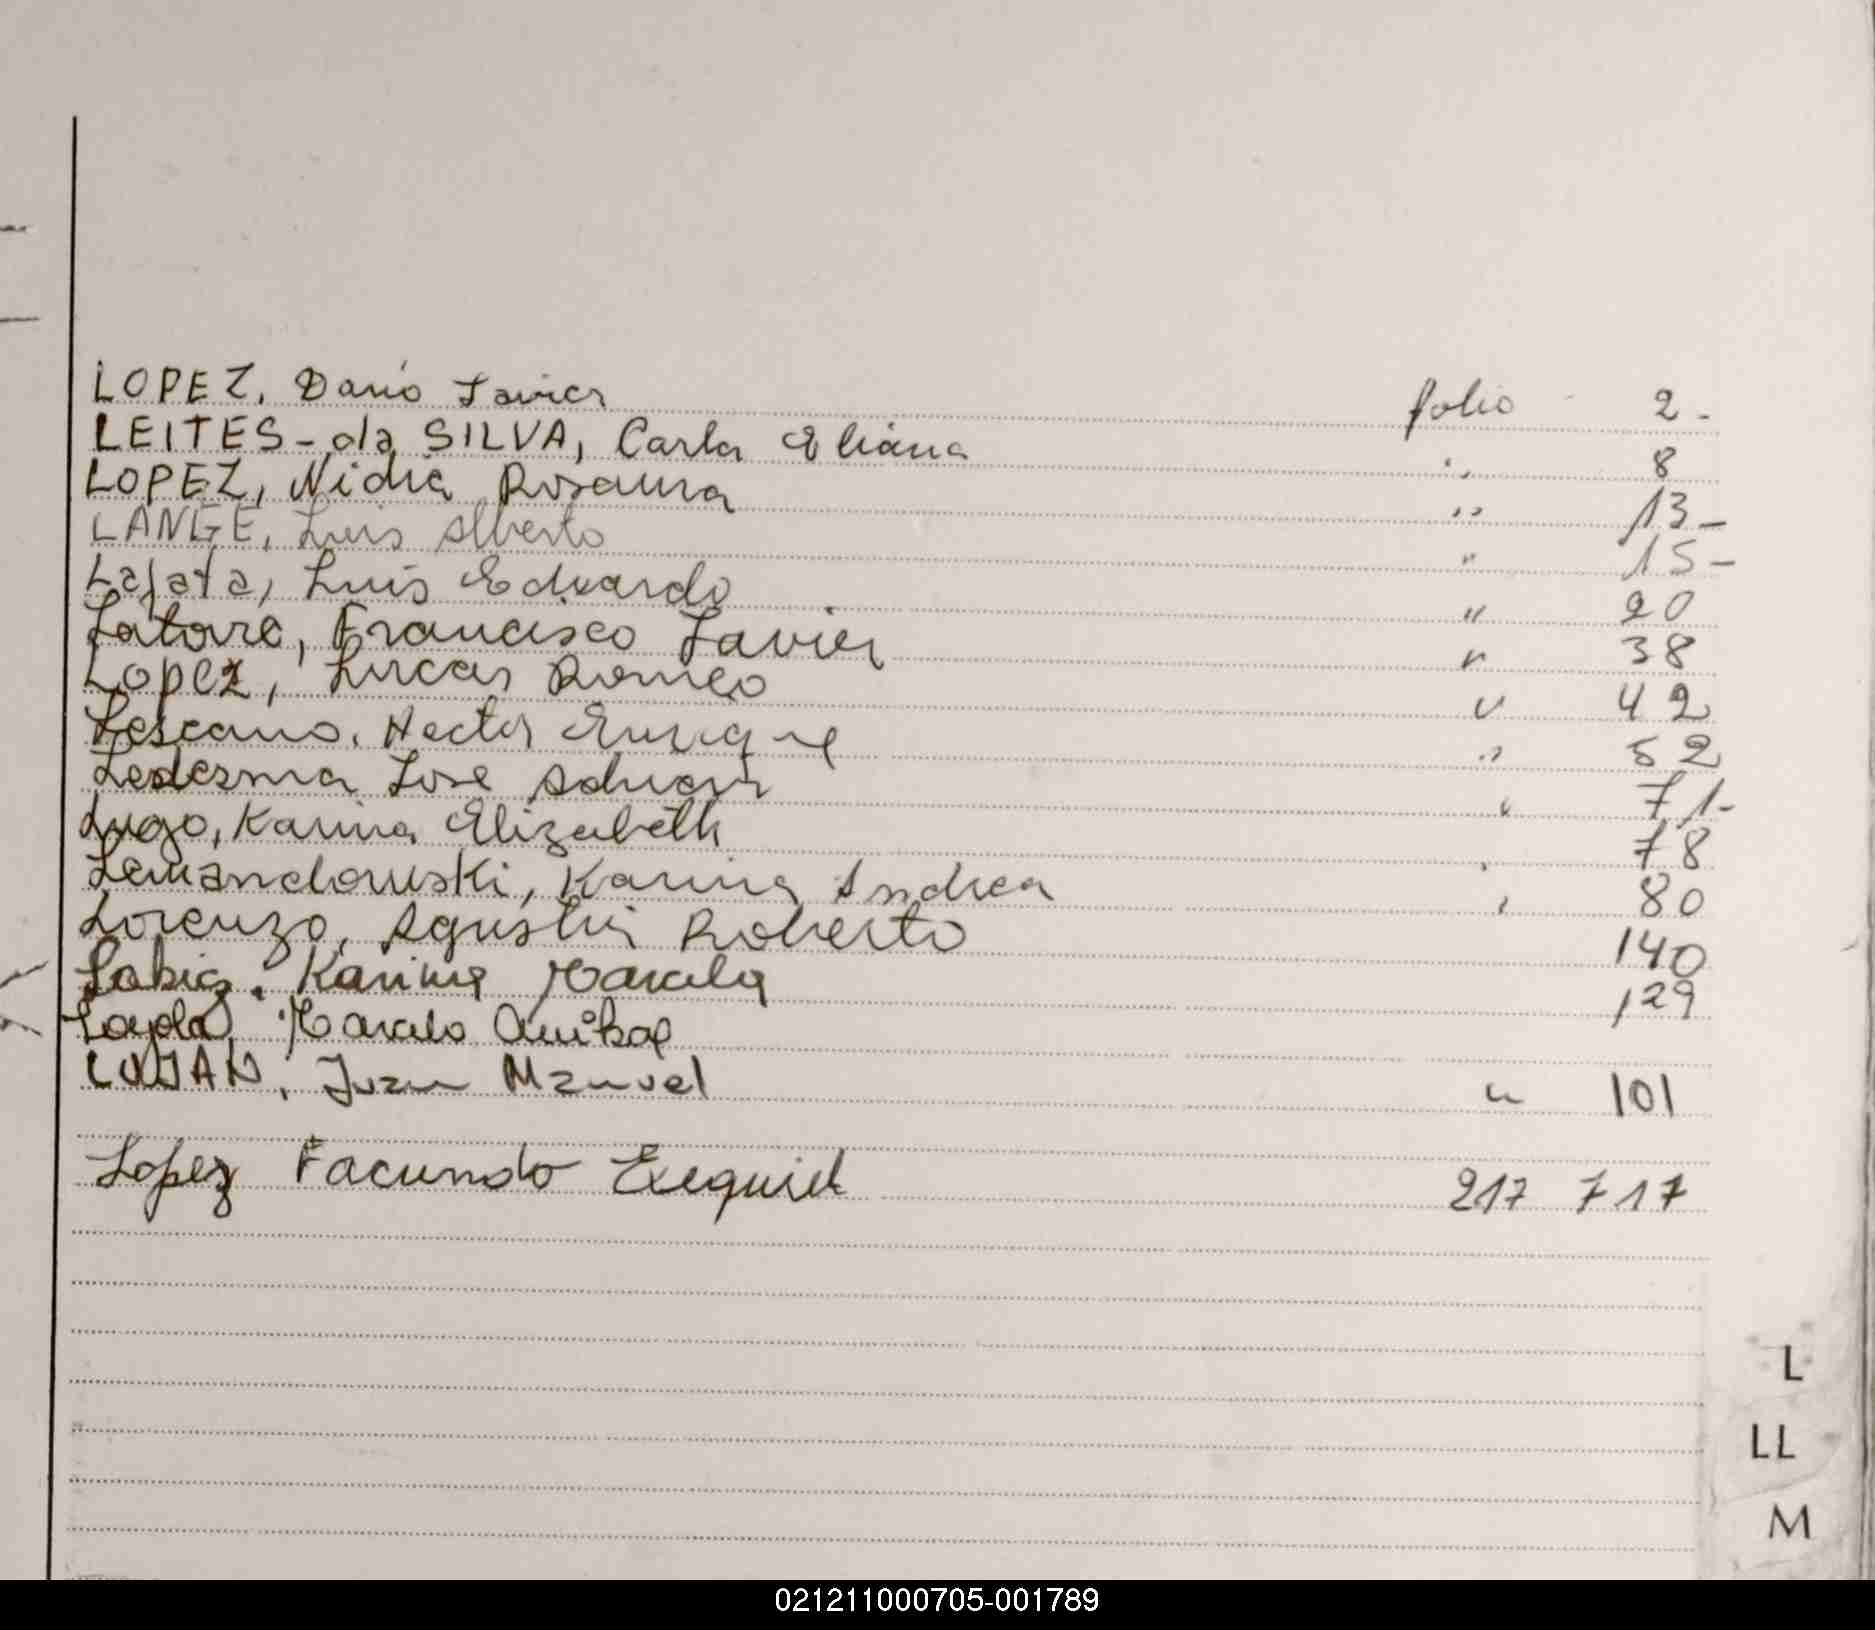 LOPEZ, Dario Javier folio 2-
LEITES-da SILVA, Carla Eliana " 8
LOPEZ, Nidia Rosaura " 13-
LANGE, Luis Alberto " 15-
Lafata, Luis Eduardo " 20
Latorre, Francisco Javier " 38
Lopez, Lucas Romeo " 42
Lescano, Hector Enrique " 52
Ledezma Jose Adrian " 71-
Lugo, Karina Elizabeth " 78
Lewandowski, Karina Andrea " 80
Lorenzo, Agustin Roberto 140
Karina Marcela 129
Loyola, Marcelo Anibal
LUJAN, Juan Manuel " 101
Lopez Facundo Exequiel 217 717
L
LL
M
021211000705-001789